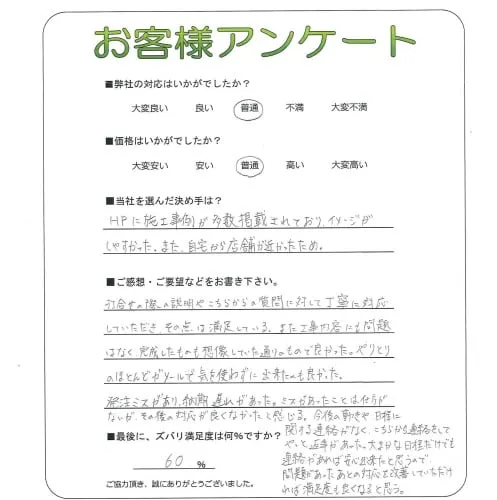 お客様アンケート
■弊社の対応はいかがでしたか?
大変良い 良い 普通 不満 大変不満
■価格はいかがでしたか?
大変安い 安い 普通 高い 大変高い
■当社を選んだ決め手は?
HPに施工事例が多数掲載されており、イメージが
しやすかった。また、自宅から店舗が近かったため。
■ご感想・ご要望などをお書き下さい。
打合せの際の説明やこちらからの質問に対して丁寧に対応
していただき、その点は満足している。また工事内容にも問題
はなく、完成したものも想像していた通りのもので良かった。やりとり
のほとんどがメールで気を使わずに出来たのも良かった。
発注ミスがあり、納期遅れがあった。ミスがあったことは仕方が
ないが、その後の対応が良くなかったと感じる。今後の動きや日程に
関する連絡がなく、こちらから連絡をして
やっと返事があった。大まかな日程だけでも
連絡があれば安心出来たと思うので
問題があったあとの対応を改善していただけ
れば満足度も良くなると思う。
■最後に、ズバリ満足度は何%ですか?
60 %
ご協力頂き、誠にありがとうございました。